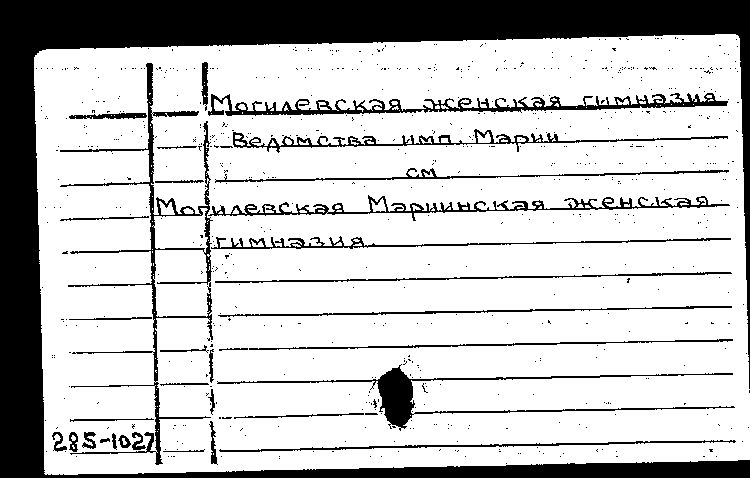 Могилевская женская гимназия
Ведомства имп. Марии
см
Могилевская Мариинская женская
гимназия.
285-1027